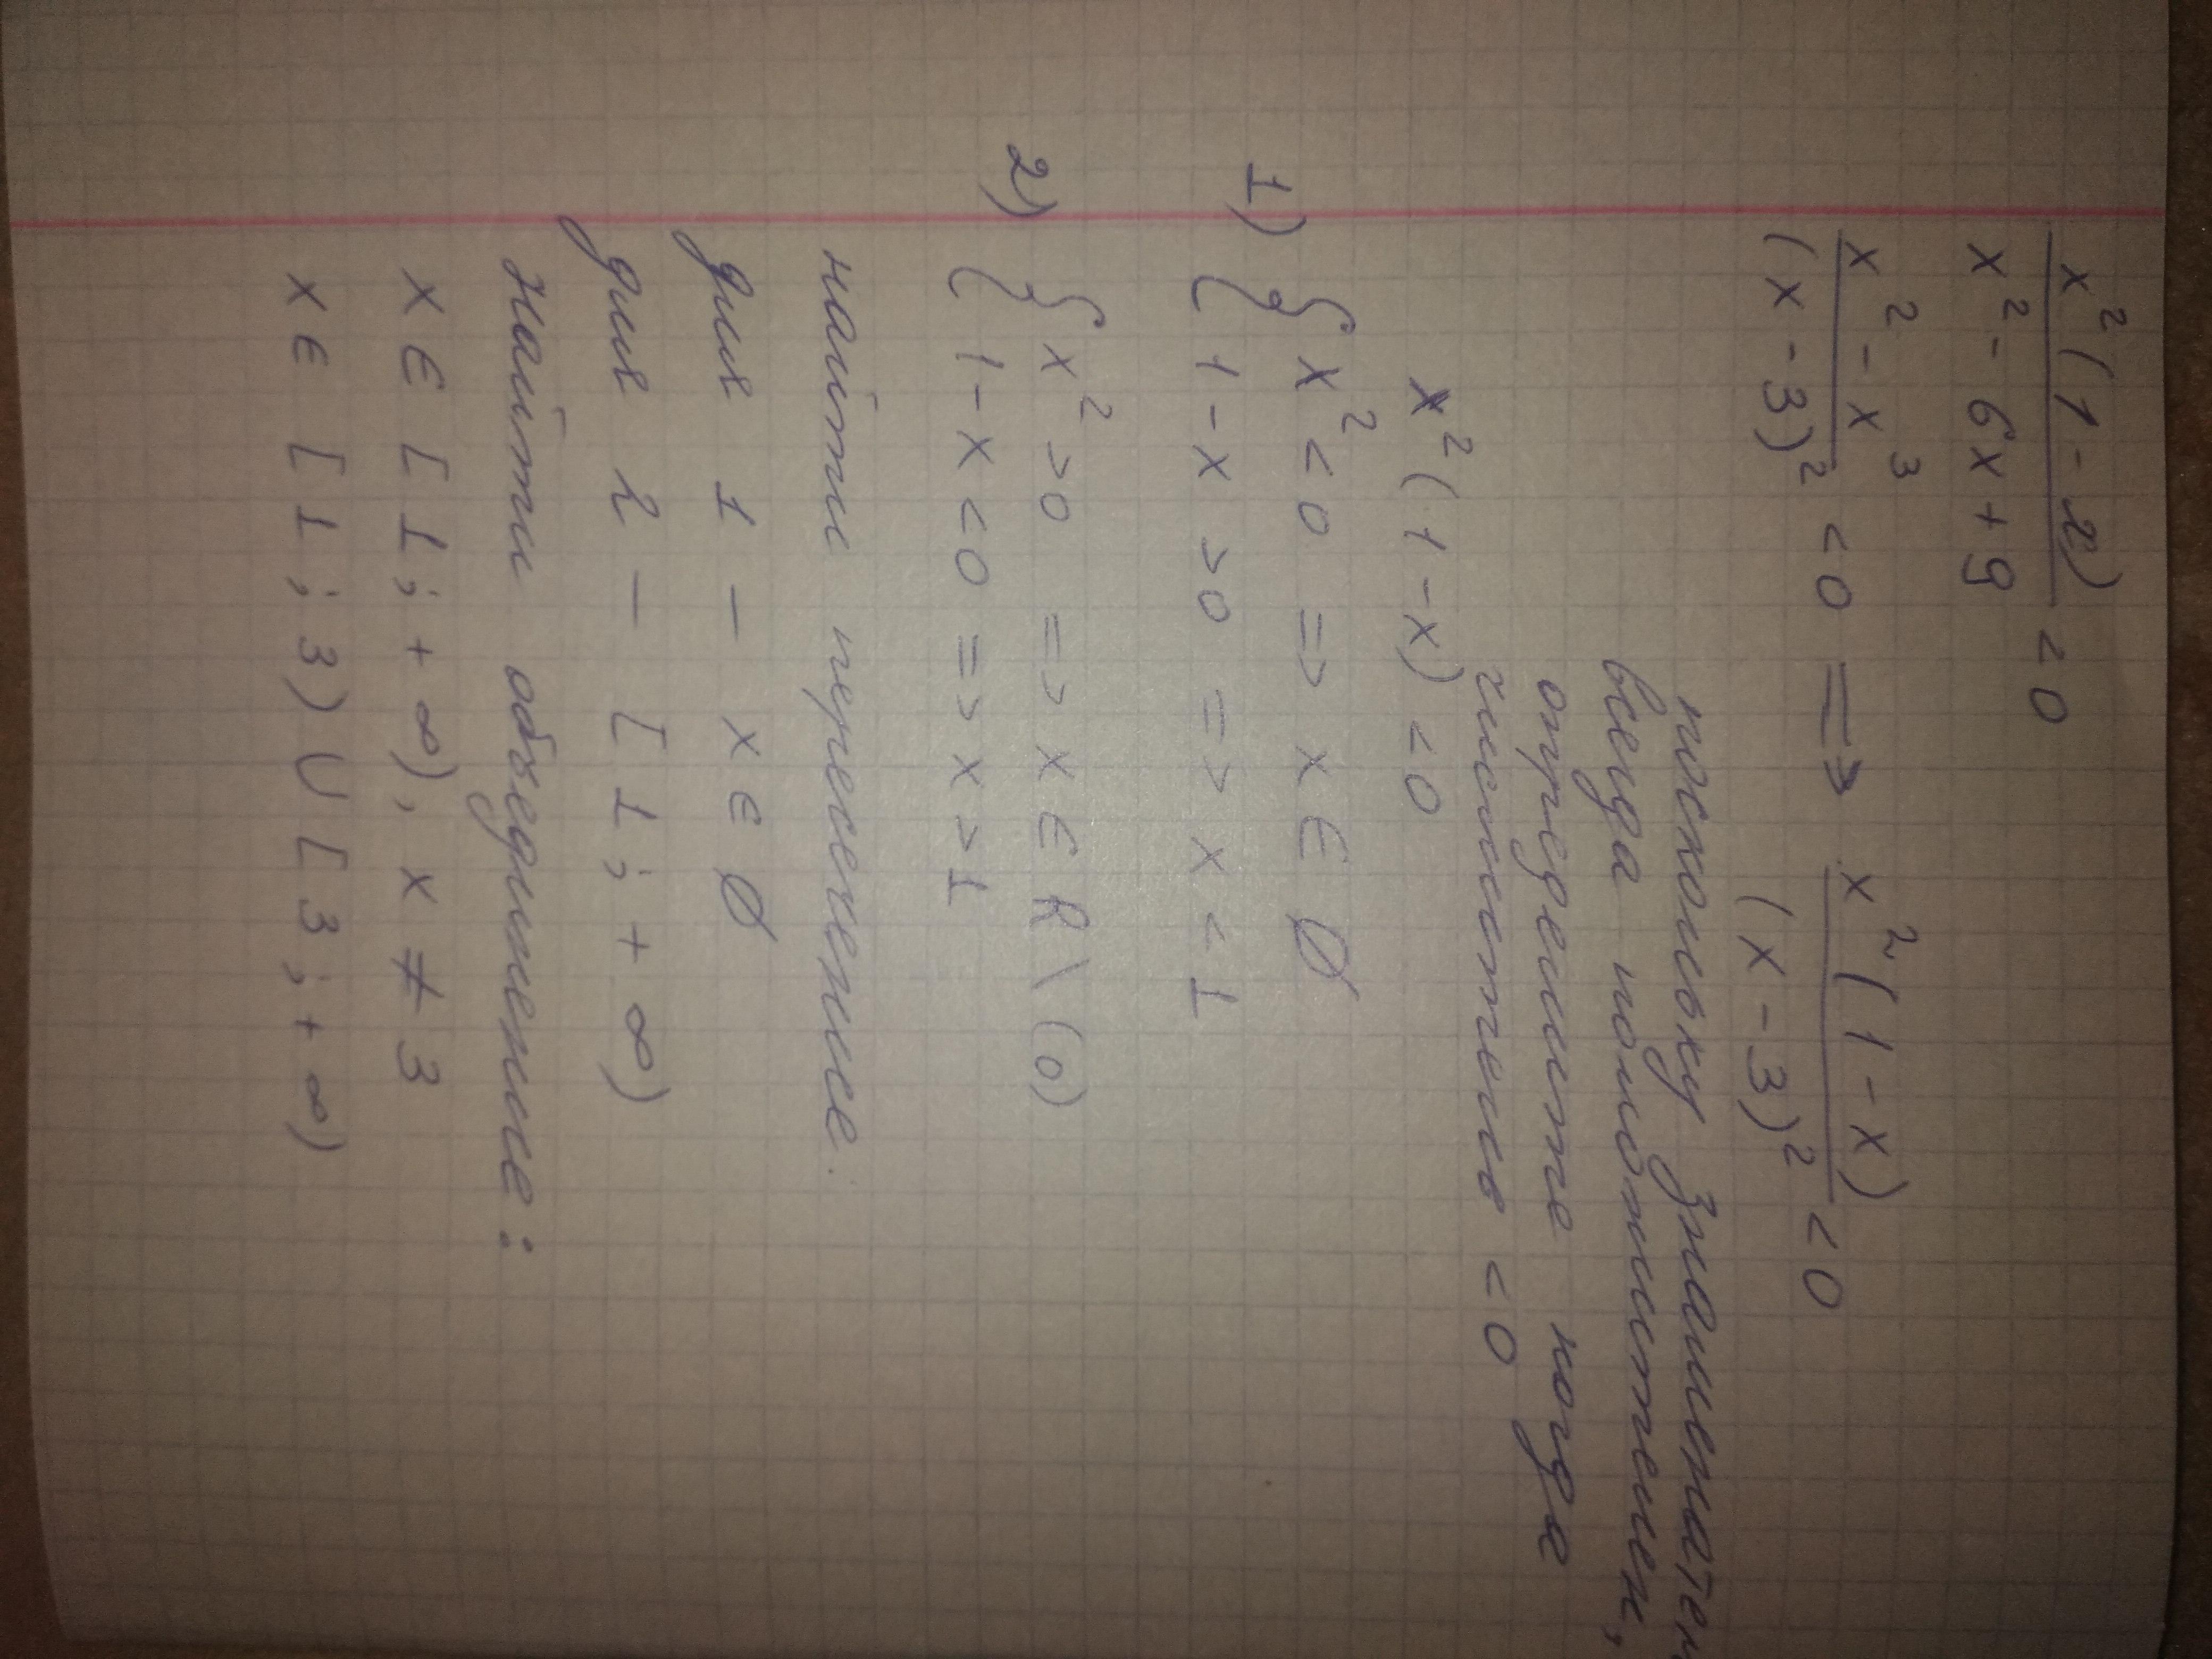 x²(1-x)
x² - 6x + 9 < 0
x² - x³
(x - 3)² < 0 => x²(1 - x)
(x - 3)² < 0
поскольку знаменатель
всегда положителен,
определите когда
числитель < 0
x²(1-x) < 0
1) { x² < 0 => x ∈ ∅
1 - x > 0 => x < 1
2) { x² > 0 => x ∈ R \ (0)
1 - x < 0 => x > 1
найти пересечение.
для 1 - x ∈ ∅
для 2 - [1; +∞)
Найти объединение:
x ∈ [1; +∞), x ≠ 3
x ∈ [1; 3) ∪ [3; +∞)